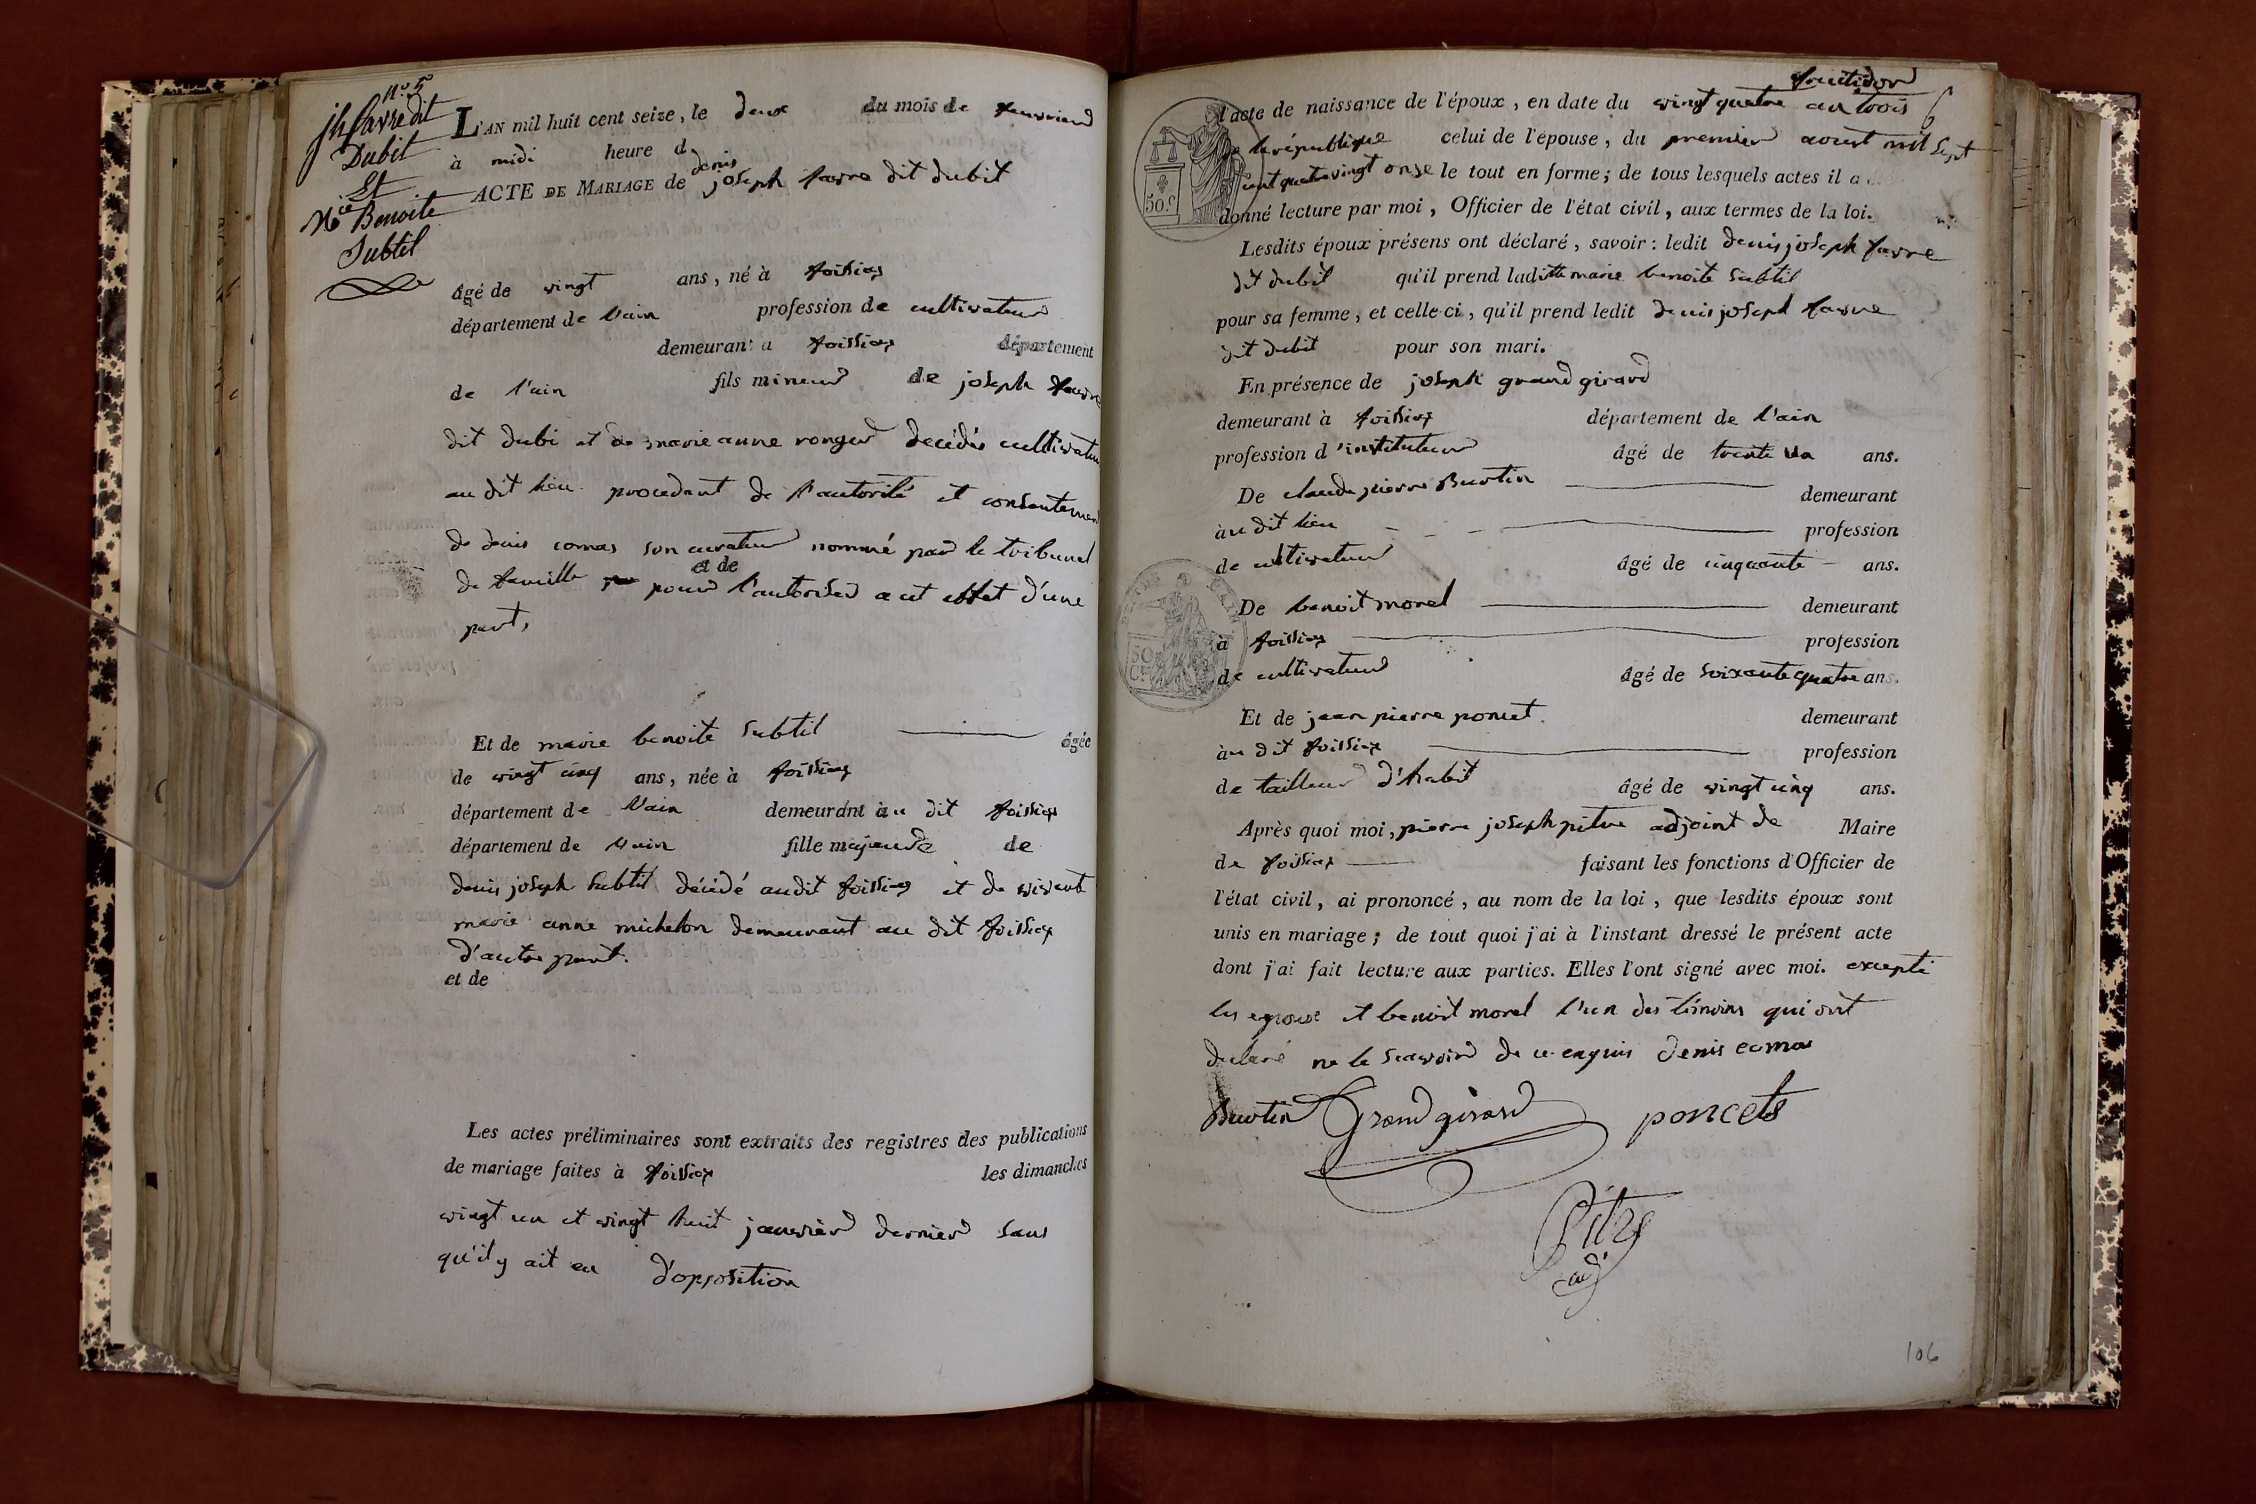 n.º 5
jh favre dit
Dubit
Et
Mie Benoite
Subtil
L'AN mil huit cent seize, le deux du mois de fevrier
à midi heure d
denis
ACTE DE MARIAGE de joseph favre dit dubit
âgé de vingt ans, né à foissiat
département de l'ain profession de cultivateur
demeurant a foissiat département
de l'ain fils mineur de joseph favre
dit dubi et de marie anne ronger decédés cultivateur
au dit lieu procedant de l'autorité et consentement
de denis comas son curateur nommé par le tribunal
et de
de famille pour l'autoriser a cet effet d'une
part,
Et de marie benoite Subtil âgée
de vingt cinq ans, née à foissiat
département de l'ain demeurant àu dit foissiat
département de l'ain fille majeure de
denis joseph Subtil décédé audit foissiat et de vivante
marie anne michelon demeurant au dit foissiat
d'autre part.
et de
Les actes préliminaires sont extraits des registres des publications
de mariage faites à foissiat les dimanches
vingt un et vingt huit janvier dernier sans
qu'il y ait eu d'opposition
fructidor
l'acte de naissance de l'époux, en date du vingt quatre an trois 6
de la république celui de l'épouse, du premier aoust mil sept
cent quatre vingt onze le tout en forme; de tous lesquels actes il a
50.c
donné lecture par moi, Officier de l'état civil, aux termes de la loi.
Lesdits époux présens ont déclaré, savoir: ledit denis joseph favre
dit dubit qu'il prend laditte marie benoite Subtil
pour sa femme, et celle-ci, qu'il prend ledit denis joseph favre
dit dubit pour son mari.
En présence de joseph grand girard
demeurant à foissiat département de l'ain
profession d'instituteur âgé de trente un ans.
De claude pierre Burtin demeurant
àu dit lieu profession
de cultivateur âgé de cinquante ans.
De benoit morel demeurant
à foissiat profession
50
de cultivateur âgé de soixante quatre ans.
Et de jean pierre poncet demeurant
àu dit foissiat profession
de tailleur d'habit âgé de vingt cinq ans.
Après quoi moi, pierre joseph pitre adjoint de Maire
de foissiat faisant les fonctions d'Officier de
l'état civil, ai prononcé, au nom de la loi, que lesdits époux sont
unis en mariage; de tout quoi j'ai à l'instant dressé le présent acte
dont j'ai fait lecture aux parties. Elles l'ont signé avec moi. excepté
les epoux et benoit morel l'un des témoins qui ont
declaré ne le scavoir de ce enquis denis comas
Burtin Grand girard poncet
Pitre
adj
106